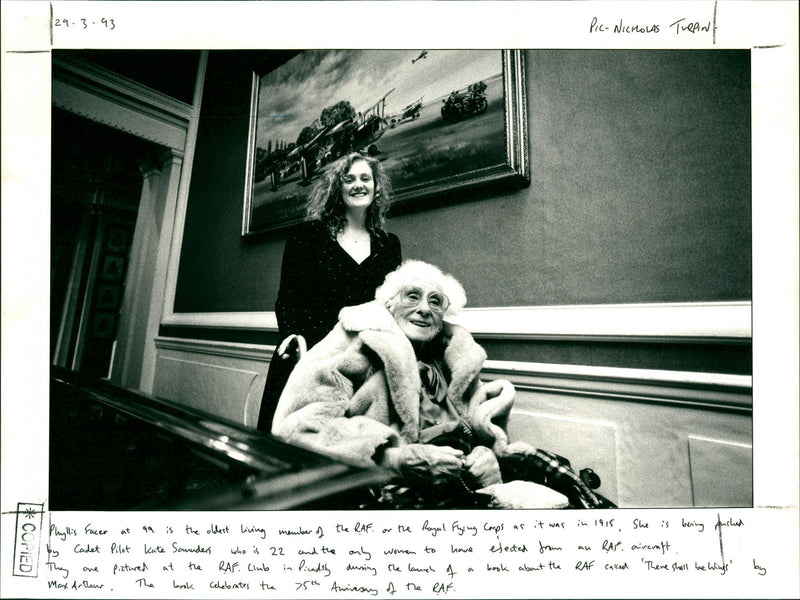 29-3-93
PIC- NICHOLAS TURPIN-
Phyllis Facer at 99 is the oldest living member of the RAF. or the Royal Flying Corps as it was in 1915. She is being pushed
by Cadet Pilot Kate Saunders who is 22 and the only women to have ejected from an RAF. aircraft.
They are pictured at the RAF. Club in Picadilly during the launch of a book about the RAF called 'There shall be Wings' by
Max Arthur. The book celebrates the 75th Aniversary of the RAF.
*COPIED